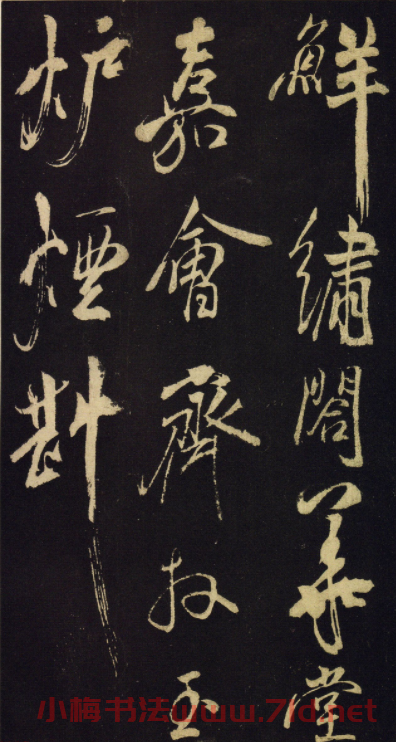 鮮繡閤華堂
嘉會齊玉
炉煙斟
小梅书法www.7ld.net